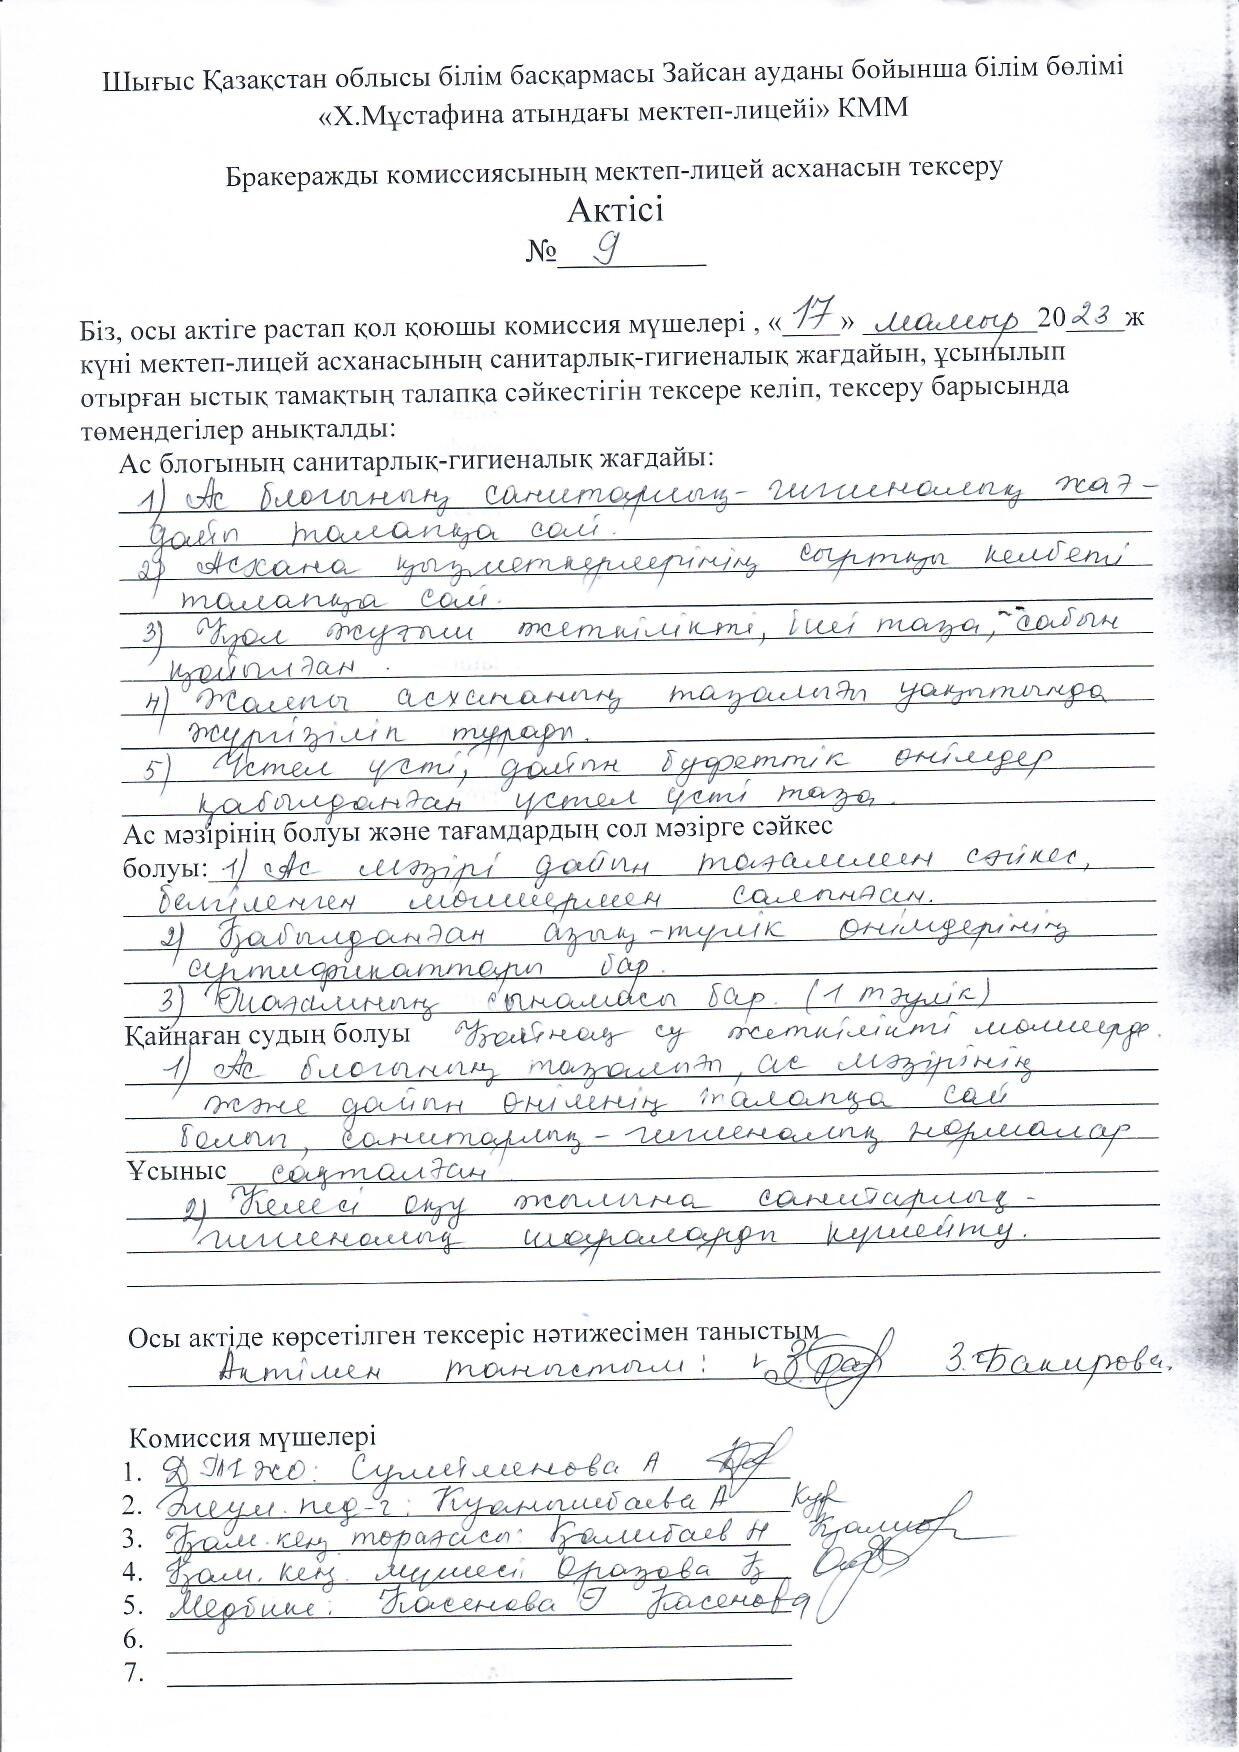 Шығыс Қазақстан облысы білім басқармасы Зайсан ауданы бойынша білім бөлімі
«Х.Мұстафина атындағы мектеп-лицейі» КММ
Бракеражды комиссиясының мектеп-лицей асханасын тексеру
Актісі
№ 9
Біз, осы актіге растап қол қоюшы комиссия мүшелері , « 17 » мамыр 2023 ж
күні мектеп-лицей асханасының санитарлық-гигиеналық жағдайын, ұсынылып
отырған ыстық тамақтың талапқа сәйкестігін тексере келіп, тексеру барысында
төмендегілер анықталды:
Ас блогының санитарлық-гигиеналық жағдайы:
1) Ас блогының санитарлық-гигиеналық жағ-
дайы талапқа сай.
2) Асхана қызметкерлерінің сыртқы келбеті
талапқа сай.
3) Қол жуғыш жеткілікті, іші таза, сабын
қойылған.
4) Жалпы асхананың тазалығы уақытында
жүргізіліп тұрады.
5) Үстел үсті, дайын буфеттік өнімдер
қабылданған үстел үсті таза.
Ас мәзірінің болуы және тағамдардың сол мәзірге сәйкес
болуы: 1) Ас мәзірі дайын тағаммен сәйкес,
белгіленген мөлшермен салынған.
2) Қабылданған азық-түлік өнімдерінің
сертификаттары бар.
3) Тағамның сынамасы бар. (1 тәулік)
Қайнаған судың болуы Қайнақ су жеткілікті мөлшерде.
1) Ас блогының тазалығы, ас мәзірінің
және дайын өнімнің талапқа сай
болып, санитарлық-гигиеналық нормалар
Ұсыныс сақталған
2) Келесі оқу жылына санитарлық-
гигиеналық шараларды күшейту.
Осы актіде көрсетілген тексеріс нәтижесімен таныстым
Актімен таныстым: З.Бакирова.
Комиссия мүшелері
1. ДТІЖО: Сулейменова А
2. Әлеум. пед-г: Куанышбаева А
3. Қам. кең төрағасы: Қалибаев Н
4. Қам. кең. мүшесі Оразова Қ
5. Медбике: Касенова Г Касенова
6.
7.